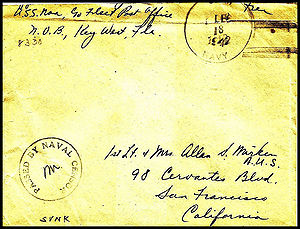 U.S.S. Noa, Go Fleet Post Office
N.O.B., Key West, Fla.
8330
Free
18
1942
NAVY
PASSED BY NAVAL CENSOR
1st Lt. & Mrs. Allan S. Warker
A.U.S.
98 Cervantes Blvd.
San Francisco
California